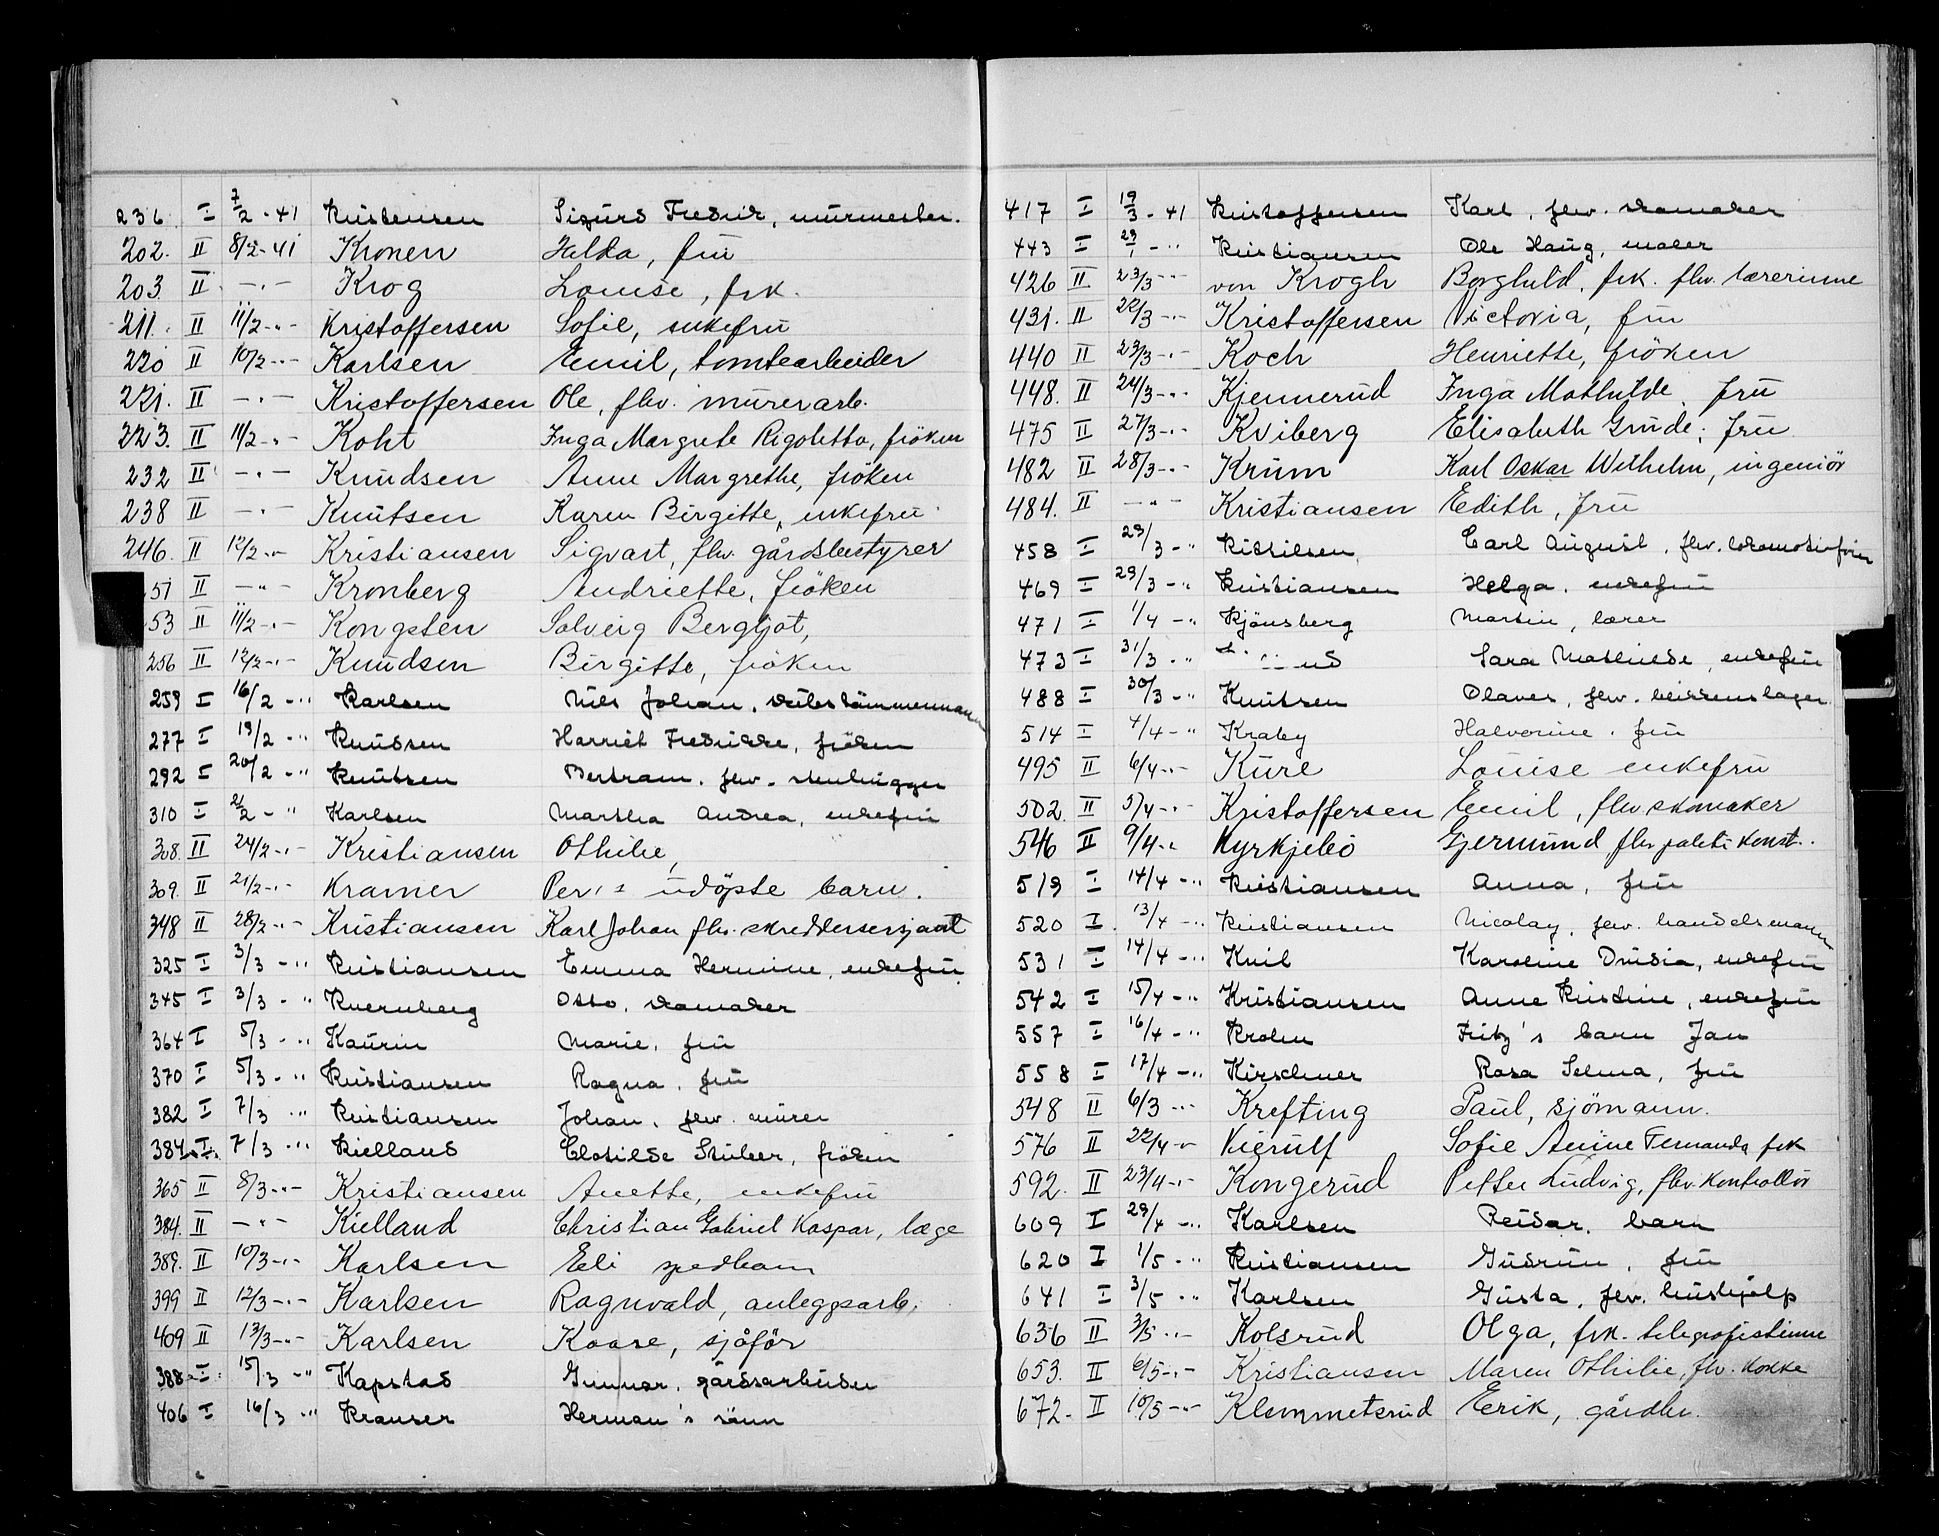 236 I 7/2 - 41 Kristensen Sigurd Fredrik, murmester.
202. II 8/2-41 Kronen Hilda, fru
203. II -"- Krog Louise, frk.
211. II 11/2 -"- Kristoffersen Sofie, enkefru
220 II 10/2 -"- Karlsen Emil, tomtearbeider
221. II -"- Kristoffersen Ole, fhv. murerarb.
223. II 11/2 -"- Koht Inga Margrete Rigoletta, fröken
232 II -"- Knudsen Anne Margrethe, fröken
238 II -"- Knutsen Karen Birgitte, enkefru
246. II 12/2 -"- Kristiansen Sigvart, fhv. gårdsbestyrer
51 II -"- Kronberg Andriette, fröken
53 II 11/2 -"- Kongsten Solveig Bergljot,
256 II 12/2 -"- Knudsen Birgitte, fröken
259 I 16/2 -"- Karlsen Nils Johan, skibstömmermann
277 I 19/2 -"- Knudsen Harriet Fredrikke, fröken
292 I 20/2 -"- Knutsen Bertram, fhv. stenhugger
310 I 21/2 -"- Karlsen Martha Andrea, enkefru
308. II 24/2 -"- Kristiansen Othilie,
309. II 21/2 -"- Kramer Per's udöpte barn.
348 II 28/2 -"- Kristiansen Karl Johan fhv. skreddersersjant
325 I 3/3 -"- Kristiansen Emma Hermine, enkefru
345 I 3/3 -"- Kvernberg Otto, skomaker
364 I 5/3 -"- Kaurin Marie, fru
370 I 5/3 -"- Kristiansen Ragna, fru
382 I 7/3 -"- Kristiansen Johan, fhv. murer
384 I 7/3 -"- Kielland Clotilde Stüber, fröken
365 II 8/3 -"- Kristiansen Anette, enkefru
384. II -"- Kielland Christian Gabriel Kaspar, læge
389. II 10/3 -"- Karlsen Eli spedbarn
399 II 12/3 -"- Karlsen Ragnvald, anleggsarb.
409 II 13/3 -"- Karlsen Kaare, sjåför
388 I 15/3 -"- Kapstad Gunnar, gårdsarbeider
406 I 16/3 -"- Kranser Herman's sönn
417 I 19/3 - 41 Kristoffersen Karl, fhv. skomaker
443 I 23/1 -"- Kristiansen Ole Haug, maler
426 II 23/3 -"- von Krogh Borghild, frk. fhv. lærerinne
431. II 22/3 -"- Kristoffersen Victoria, fru
440 II 23/3 -"- Koch Henriette, fröken
448. II 24/3 -"- Kjennerud Inga Mathilde, fru
475 II 27/3 -"- Kviberg Elisabeth Grude, fru
482 II 28/3 -"- Krum Karl Oskar Wilhelm, ingeniör
484. II -"- Kristiansen Edith, fru
458 I 29/3 -"- Kittilsen Carl August, fhv. lokomotivfører
469 I 29/3 -"- Kristiansen Helga, enkefru
471 I 1/4 -"- Kjönsberg Martin, lærer
473 I 31/3 -"- Sara Mathilde, enkefru
488 I 30/3 -"- Knutsen Olaves, fhv.
514 I 4/4 -"- Kraby Halvorine, fru
495 II 6/4 -"- Kure Louise enkefru
502. II 5/4 -"- Kristoffersen Emil, fhv. skomaker
546 II 9/4 -"- Kyrkjebö Gjermund fhv politikonst.
519 I 14/4 -"- Kristiansen Anna, fru
520 I 13/4 -"- Kristiansen Nicolay, fhv. handelsmann
531 I 14/4 -"- Kiil Karoline Drusia, enkefru
542 I 15/4 -"- Kristiansen Anne Kristine, enkefru
557 I 16/4 -"- Krohn Fritz's barn Jan
558 I 17/4 -"- Kirschner Rosa Selma, fru
548 II 6/3 -"- Krefting Paul, sjömann.
576 II 22/4 -"- Kierulf Sofie Anine Fernanda frk
592. II 23/4 -"- Kongerud Petter Ludvig, fhv. kontrollör
609 I 29/4 -"- Karlsen Reidar, barn
620 I 1/5 -"- Kristiansen Gudrun, fru
641 I 3/5 -"- Karlsen Gusta, fhv. hushjelp
636 II 3/5 -"- Kolsrud Olga, frk. telegrafistinne
653. II 6/5 -"- Kristiansen Maren Othilie, fhv. kokke
672. II 10/5 -"- Klemmetsrud Erik, gårdbr.